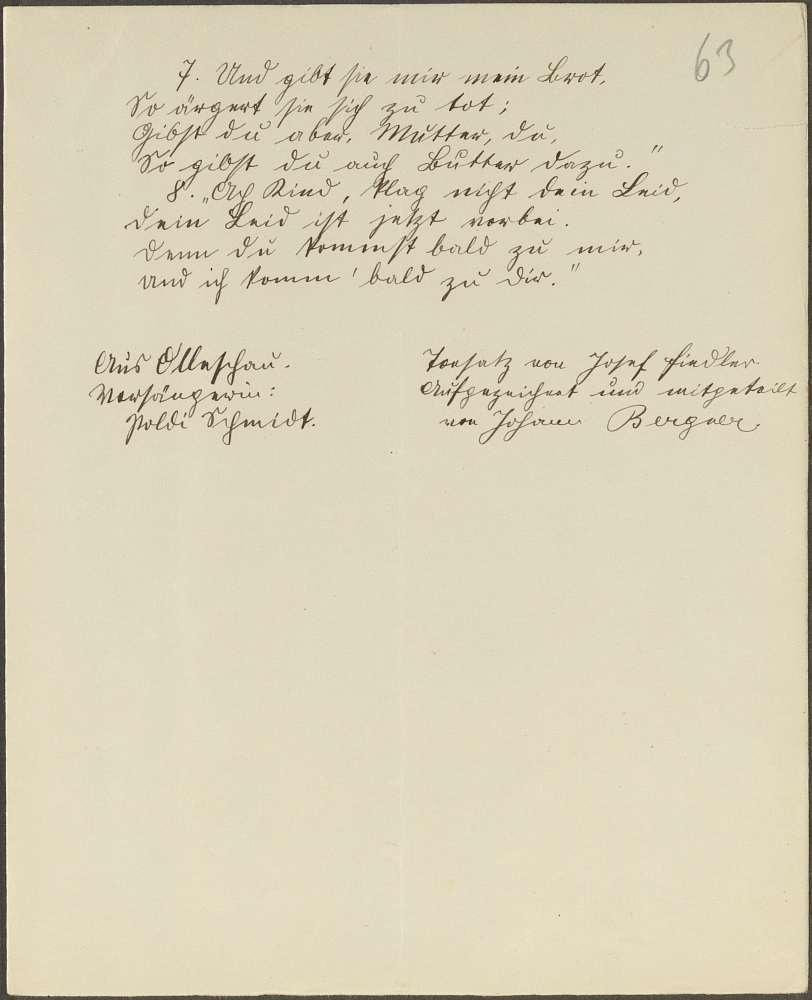 63
7. Und gibt sie mir mein Brot,
So ärgert sie sich zu tot;
Gibst du aber, Mutter, du,
So gibst du auch Butter dazu."
8. „Ach Kind, klag nicht dein Leid,
dein Leid ist jetzt vorbei.
Denn du kommst bald zu mir,
und ich komm' bald zu dir."
Aus Olleschau.
Vorsängerin:
Poldi Schmidt.
Tonsatz von Josef Fiedler
Aufgezeichnet und mitgeteilt
von Johann Bergner.